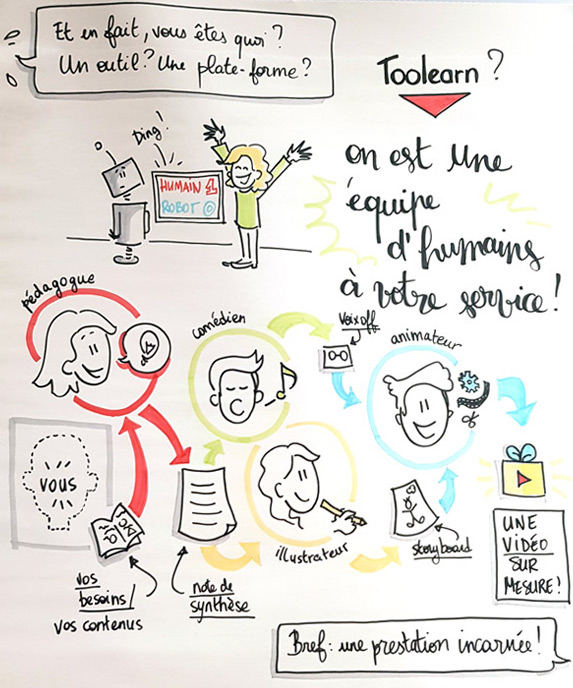 Et en fait, vous êtes quoi ?
Un outil ? Une plate-forme ?
Toolearn ?
Ding !
HUMAIN 1
ROBOT 0
on est une
équipe
d'humains
à votre service !
pédagogue
comédien
voix off
animateur
vous
illustrateur
storyboard
vos
besoins/
vos contenus
note de
synthèse
UNE
VIDÉO
SUR
MESURE !
Bref : une prestation incarnée !